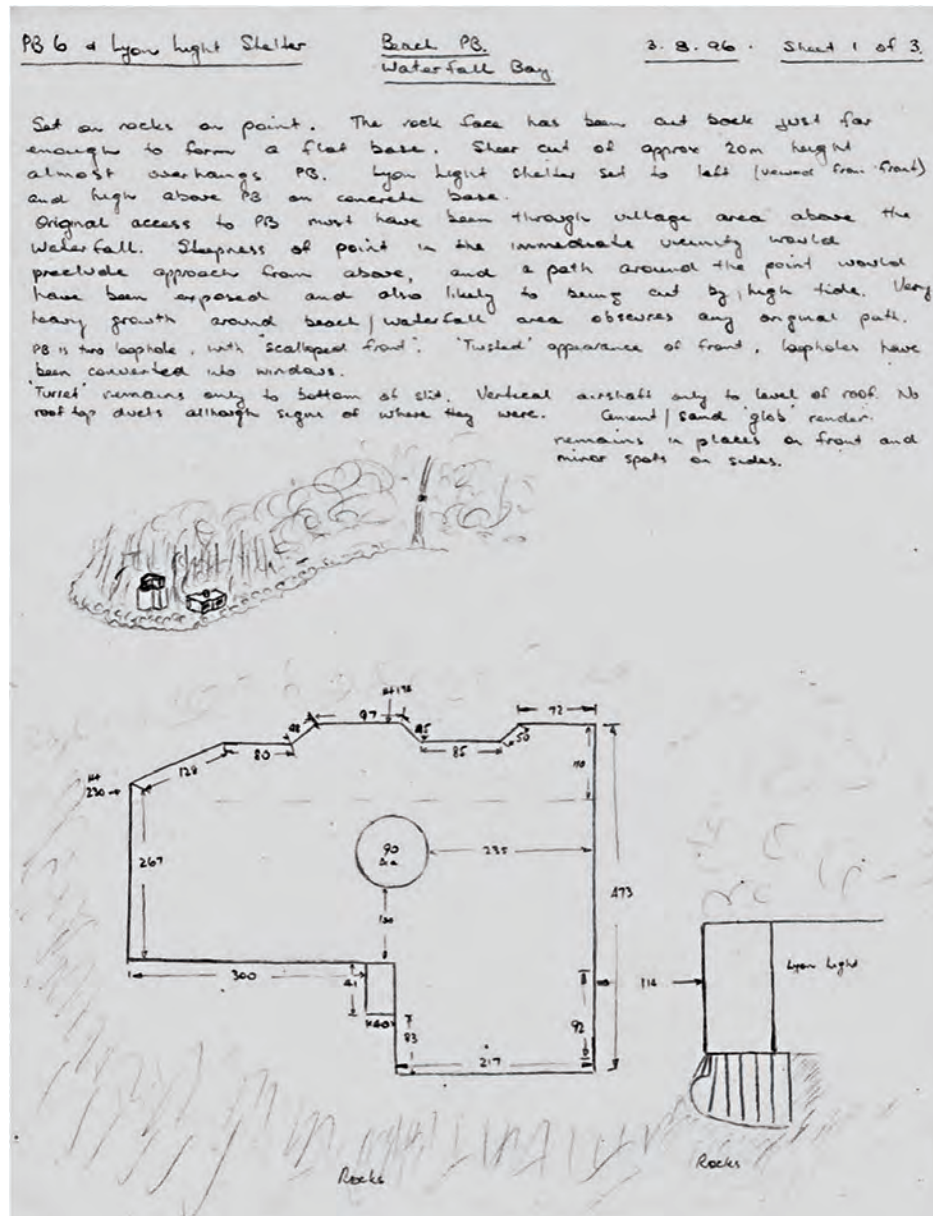 PB 6 & Lyon Light Shelter
Beach PB.
Waterfall Bay
3. 8. 96. Sheet 1 of 3.
Set on rocks on point. The rock face has been cut back just far
enough to form a flat base. Sheer cut of approx 20m height
almost overhangs PB. Lyon Light Shelter set to left (viewed from front)
and high above PB on concrete base.
Original access to PB must have been through village area above the
Waterfall. Steepness of point in the immediate vicinity would
preclude approach from above, and a path around the point would
have been exposed and also likely to being cut by high tide. Very
heavy growth around beach / waterfall area obscures any original path.
PB is two loophole, with "scalloped front". 'Twisted' appearance of front, loopholes have
been converted into windows.
'Turret' remains only to bottom of slit. Vertical airshaft only to level of roof. No
roof top ducts although signs of where they were. Cement / sand 'glob' render
remains in places on front and
minor spots on sides.
97
72
80
85
50
128
Ht
230
110
267
90
Dia
235
473
300
41
40
83
92
217
114
Lyon Light
Rocks
Rocks